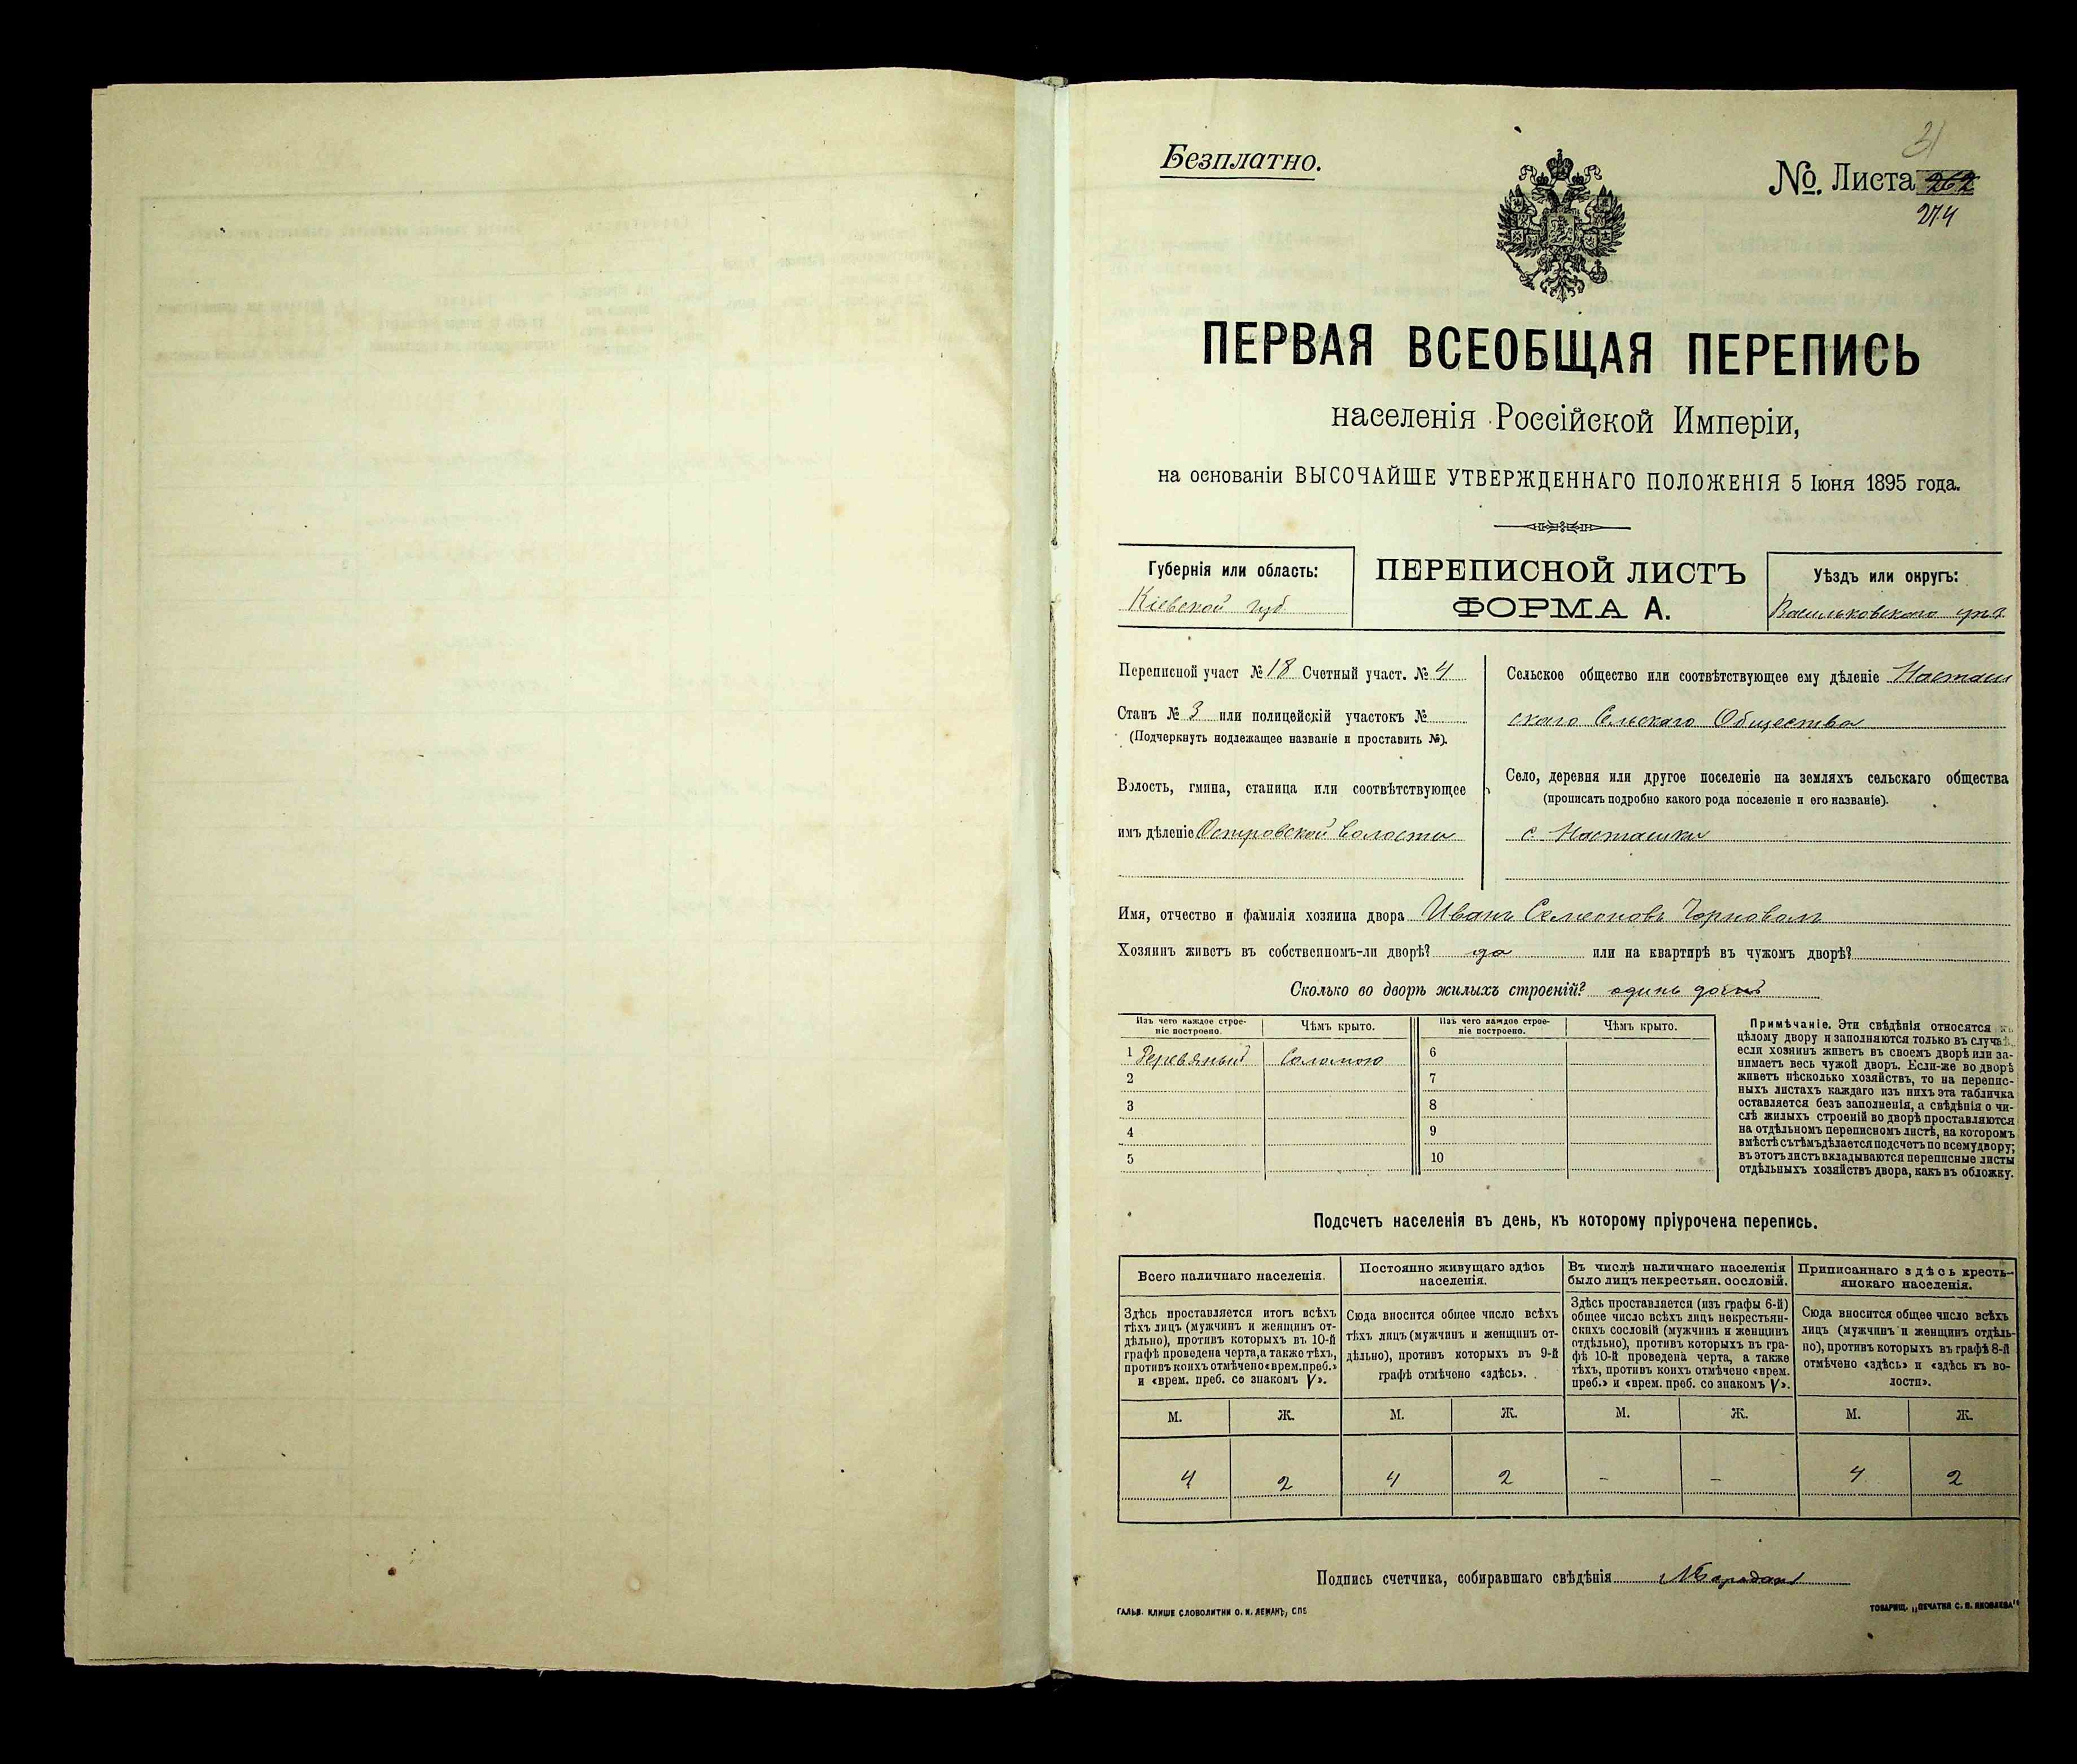 31
Безплатно.
№. Листа 262
274
ПЕРВАЯ ВСЕОБЩАЯ ПЕРЕПИСЬ
населенія Россійской Имперіи,
на основаніи ВЫСОЧАЙШЕ УТВЕРЖДЕННАГО ПОЛОЖЕНІЯ 5 Іюня 1895 года.
Губернія или область:
Кіевской губ
ПЕРЕПИСНОЙ ЛИСТЪ
ФОРМА А.
Уѣздъ или округъ:
Васильковского
Переписной участ № 18 Счетный участ. № 4
Станъ № 3 или полицейскій участокъ №
(Подчеркнуть подлежащее названіе и проставить №).
Волость, гмина, станица или соотвѣтствующее
имъ дѣленіе Островской Волости
Сельское общество или соотвѣтствующее ему дѣленіе Насташ
скаго Сельскаго Общества
Село, деревня или другое поселеніе на земляхъ сельскаго общества
(прописать подробно какого рода поселеніе и его названіе).
с. Насташки
Имя, отчество и фамилія хозяина двора Иванъ Семеоновъ Чорновол
Хозяинъ живетъ въ собственномъ-ли дворѣ? да или на квартирѣ въ чужомъ дворѣ?
Сколько во дворѣ жилыхъ строеній? одинъ домъ
Изъ чего каждое строе-
ніе построено.
Чѣмъ крыто.
Изъ чего каждое строе-
ніе построено.
Чѣмъ крыто.
1 Деревяный Соломою 6
2 7
3 8
4 9
5 10
Примѣчаніе. Эти свѣдѣнія относятся къ
цѣлому двору и заполняются только въ случаѣ,
если хозяинъ живетъ въ своемъ дворѣ или за-
нимаетъ весь чужой дворъ. Если-же во дворѣ
живетъ нѣсколько хозяйствъ, то на перепис-
ныхъ листахъ каждаго изъ нихъ эта табличка
оставляется безъ заполненія, а свѣдѣнія о чи-
слѣ жилыхъ строеній во дворѣ проставляются
на отдѣльномъ переписномъ листѣ, на которомъ
вмѣстѣ съ тѣмъ дѣлается подсчетъ по всему двору;
въ этотъ листъ вкладываются переписные листы
отдѣльныхъ хозяйствъ двора, какъ въ обложку.
Подсчетъ населенія въ день, къ которому пріурочена перепись.
Всего наличнаго населенія.
Здѣсь проставляется итогъ всѣхъ
тѣхъ лицъ (мужчинъ и женщинъ от-
дѣльно), противъ которыхъ въ 10-й
графѣ проведена черта, а также тѣхъ,
противъ коихъ отмѣчено «врем. преб.»
и «врем. преб. со знакомъ V».
Постоянно живущаго здѣсь
населенія.
Сюда вносится общее число всѣхъ
тѣхъ лицъ (мужчинъ и женщинъ от-
дѣльно), противъ которыхъ въ 9-й
графѣ отмѣчено «здѣсь».
Въ числѣ наличнаго населенія
было лицъ некрестьян. сословій.
Здѣсь проставляется (изъ графы 6-й)
общее число всѣхъ лицъ некрестьян-
скихъ сословій (мужчинъ и женщинъ
отдѣльно), противъ которыхъ въ гра-
фѣ 10-й проведена черта, а также
тѣхъ, противъ коихъ отмѣчено «врем.
преб.» и «врем. преб. со знакомъ V».
Приписаннаго здѣсь кресть-
янскаго населенія.
Сюда вносится общее число всѣхъ
лицъ (мужчинъ и женщинъ отдѣль-
но), противъ которыхъ въ графѣ 8-й
отмѣчено «здѣсь» и «здѣсь къ во-
лости».
М. Ж. М. Ж. М. Ж. М. Ж.
4 2 4 2 - - 4 2
Подпись счетчика, собиравшаго свѣдѣнія
ГАЛЬВ. КЛИШЕ СЛОВОЛИТНИ О. И. ЛЕМАНЪ, СПБ
ТОВАРИЩ. „ПЕЧАТНЯ С. П. ЯКОВЛЕВА“